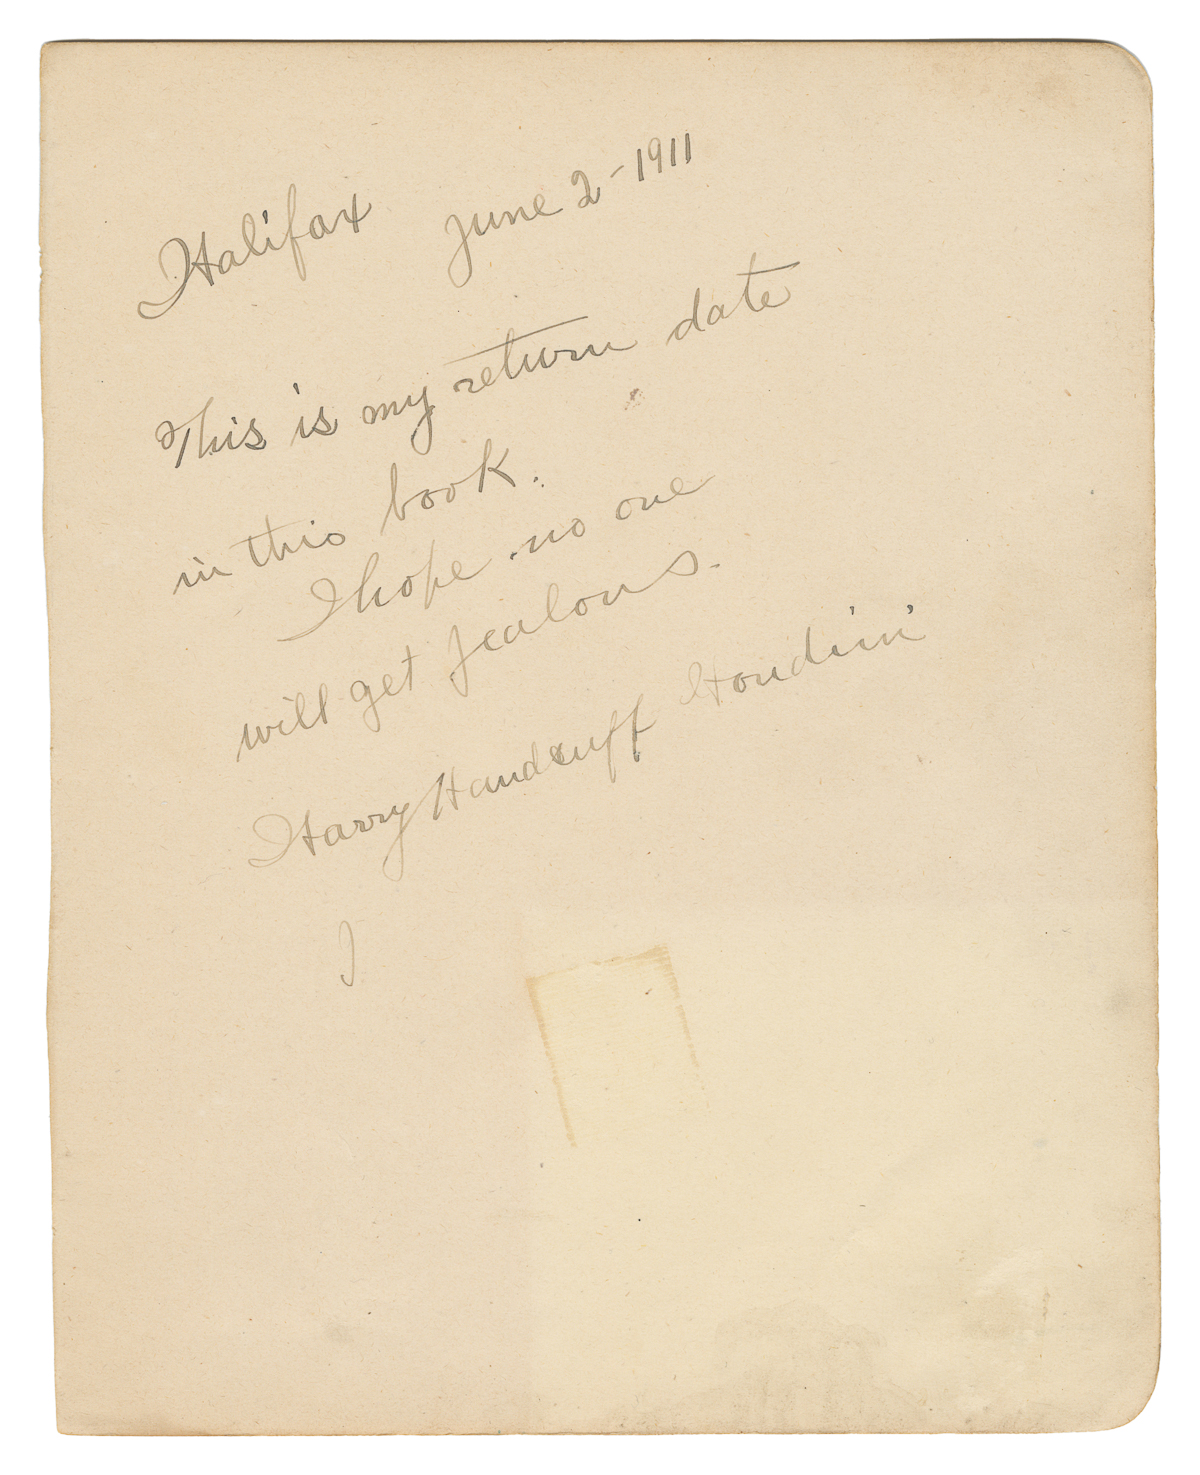 Halifax June 2 - 1911
This is my return date
in this book.
I hope no one
will get jealous.
Harry Handcuff Houdini